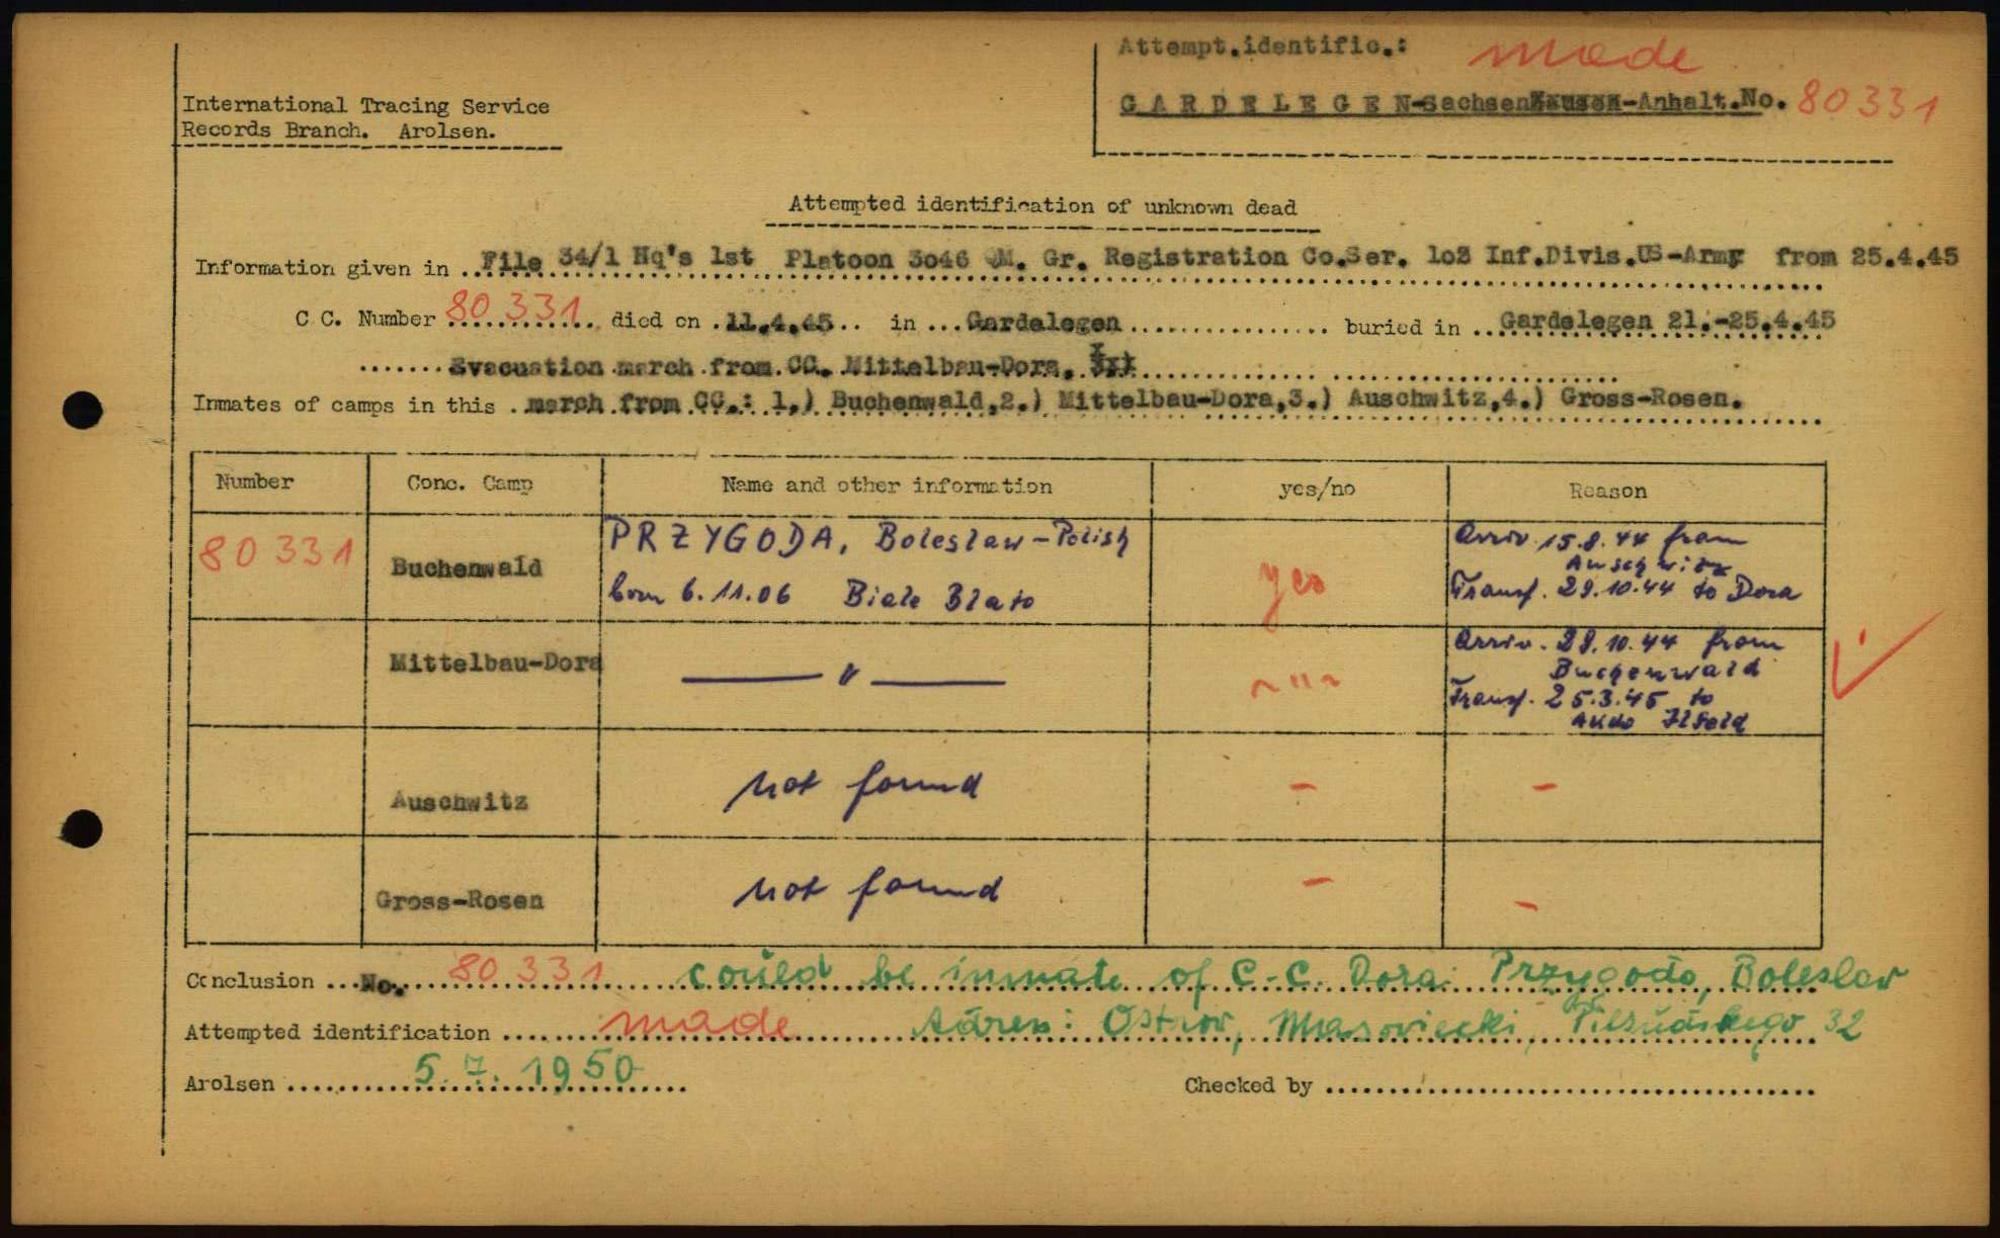 Attempt.identific.: made
International Tracing Service
Records Branch. Arolsen.
G A R D E L E G E N-Sachsen-Anhalt.No. 80331
Attempted identification of unknown dead
Information given in ..File 34/1 Hq's 1st Platoon 3o46 QM. Gr. Registration Co.Ser. 1o2 Inf.Divis.US-Army from 25.4.45
C C. Number 80 331 died on .11.4.45.. in ...Gardelegen................ buried in ..Gardelegen 21.-25.4.45
.......Evacuation march from CC. Mittelbau-Dora.
Inmates of camps in this .march from CC.: 1.) Buchenwald,2.) Mittelbau-Dora,3.) Auschwitz,4.) Gross-Rosen.
Number Conc. Camp Name and other information yes/no Reason
80 331 Buchenwald PRZYGODA, Boleslaw - Polish yes Arriv. 15.8.44 from
Auschwitz
born 6.11.06 Biale Blato Transf. 29.10.44 to Dora
Mittelbau-Dora — " — — " — Arriv. 29.10.44 from
Buchenwald
Transf. 25.3.45 to
Akdo Ilfeld
Auschwitz not found - -
Gross-Rosen not found - -
Conclusion ...No. 80 331 could be inmate of C.-C. Dora: Przygoda, Boleslav
Attempted identification ..... made Adress: Ostrov, Masoviecki, Pilsudskego 32
Arolsen ....5.7.1950.... Checked by ....................